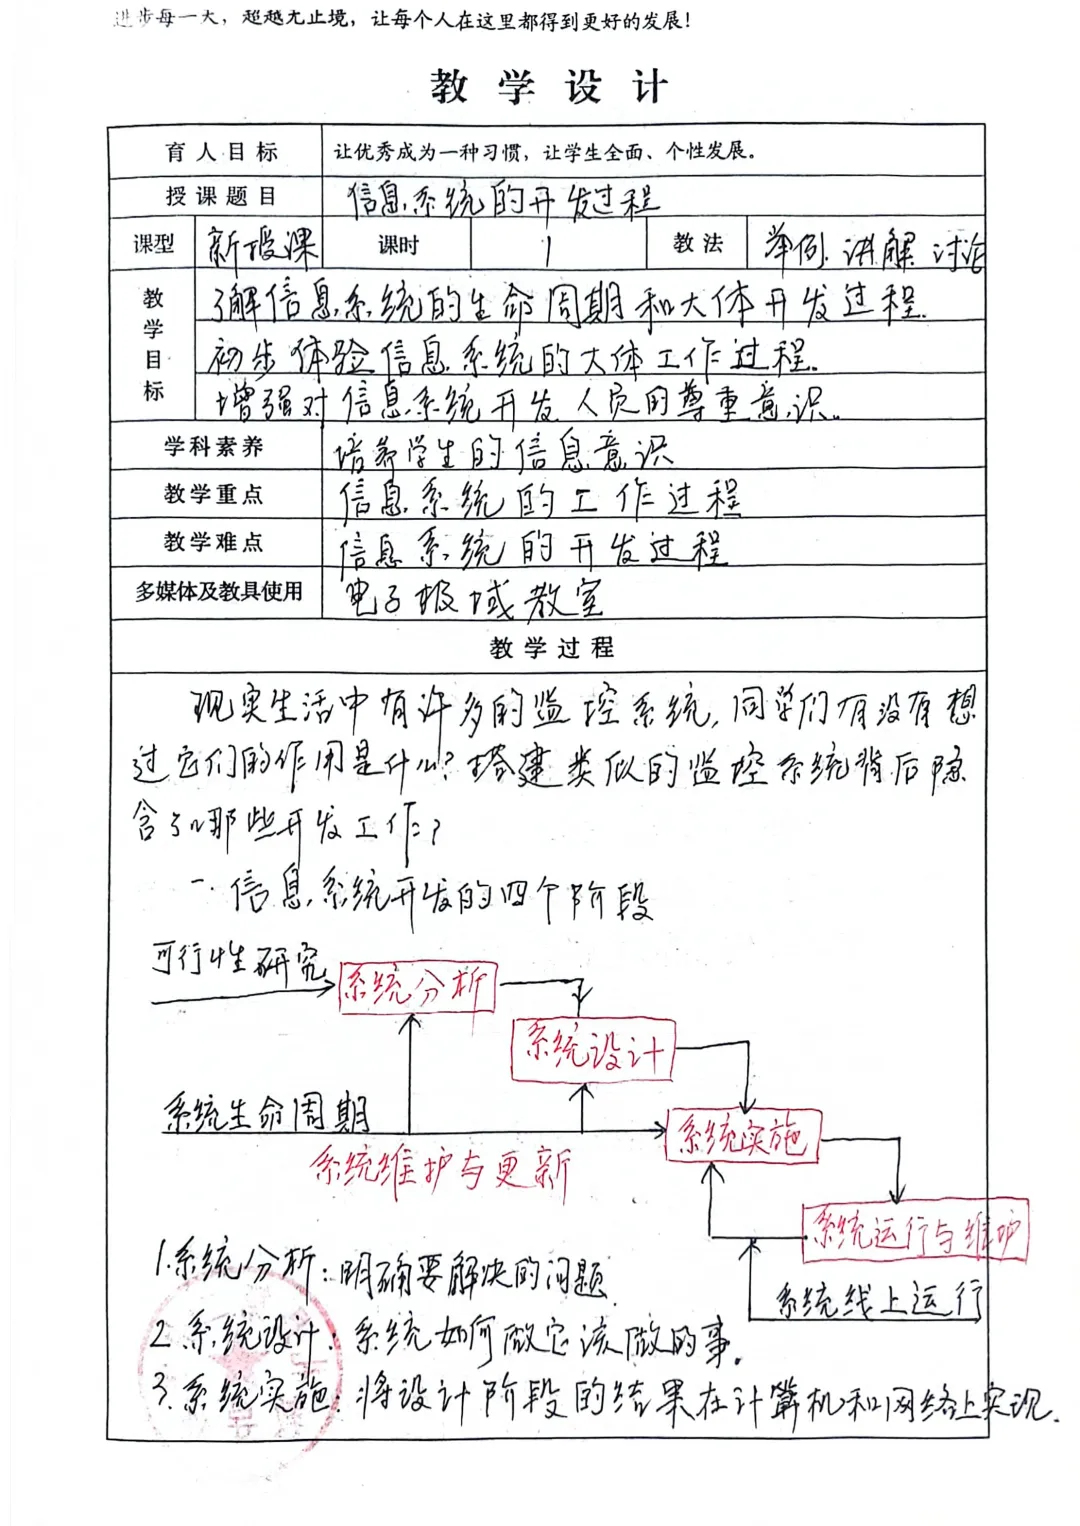 进步每一天，超越无止境，让每个人在这里都得到更好的发展！
教学设计
育人目标 让优秀成为一种习惯，让学生全面、个性发展。
授课题目 信息系统的开发过程
课型 新授课 课时 1 教法 举例 讲解 讨论
教学目标
了解信息系统的生命周期和大体开发过程.
初步体验信息系统的大体工作过程.
增强对信息系统开发人员的尊重意识。
学科素养 培养学生的信息意识
教学重点 信息系统的工作过程
教学难点 信息系统的开发过程
多媒体及教具使用 电子极域教室
教学过程
现实生活中有许多的监控系统,同学们有没有想
过它们的作用是什么?搭建类似的监控系统背后隐
含了哪些开发工作?
一.信息系统开发的四个阶段
可行性研究
系统分析
系统设计
系统生命周期
系统实施
系统维护与更新
系统运行与维护
系统线上运行
1.系统分析:明确要解决的问题.
2.系统设计:系统如何做它该做的事。
3.系统实施:将设计阶段的结果在计算机和网络上实现.